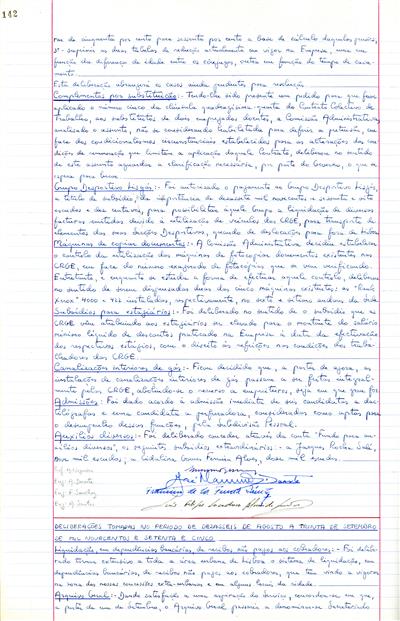 142
rar de cinquenta por cento para sessenta por cento a base de cálculo daquelas pensões,
3º - suprimir as duas tabelas de redução actualmente em vigor na Empresa, uma em
função da diferença de idade entre os cônjuges, outra em função do tempo de casa-
mento.
Esta deliberação abrangerá os casos ainda pendentes para resolução.
Complementos por substituição: - Tendo-lhe sido presente um pedido para que fosse
aplicado o número cinco da cláusula quadragésima-quarta do Contrato Colectivo de
Trabalho, aos substitutos de dois empregados doentes, a Comissão Administrativa,
analisado o assunto, não se considerando habilitada para deferir a pretensão, em
face dos condicionalismos circunstanciais estabelecidos para as alterações das con-
dições de remuneração que limitam a aplicação daquele Contrato, deliberou no sentido
de este assunto aguardar a clarificação necessária, por parte do Governo, o que se
espera para breve.
Grupo Desportivo Lisgás: - Foi autorizado o pagamento ao Grupo Desportivo Lisgás,
a título de subsídio, da importância de dezassete mil novecentos e sessenta e oito
escudos e dez centavos, para possibilitar àquele Grupo a liquidação de diversas
facturas emitidas devido à utilização de viaturas das CRGE, para transporte de
elementos das suas Secções Desportivas, quando de deslocações para fora de Lisboa.
Máquinas de copiar documentos: - A Comissão Administrativa decidiu estabelecer
o controlo da utilização das máquinas de fotocópias documentos existentes nas
CRGE, em face do número exagerado de fotocópias que se vem verificando.
Entretanto, e enquanto se estuda a forma de efectuar aquele controlo, deliberou
no sentido de serem dispensadas duas das cinco máquinas existentes: as "Rank
Xerox" 4000 e 422 instaladas, respectivamente, no sexto e sétimo andares da Sede.
Subsídios para estagiários: - Foi deliberado no sentido de o subsídio que as
CRGE vêm atribuindo aos estagiários ser elevado para o montante do salário
mínimo líquido de descontos praticado na Empresa à data da efectivação
dos respectivos estágios, com o direito às refeições nas condições dos traba-
lhadores das CRGE.
Canalizações interiores de gás: - Ficou decidido que, a partir de agora, as
instalações de canalizações interiores de gás passem a ser feitas integral-
mente pelas CRGE, abolindo-se o recurso a empreiteiros, seja em que for.
Admissões: - Foi dado acordo à admissão imediata de seis candidatos a dac-
tilógrafos e uma candidata a perfuradora, considerados como aptos para
o desempenho dessas funções, pela Subdivisão Pessoal.
Auxílios diversos: - Foi deliberado conceder através da conta "Fundo para au-
xílios diversos", os seguintes subsídios extraordinários: - a
mil escudos, a Gracinda Gomes Ferreira Alves, doze mil escudos.
DELIBERAÇÕES TOMADAS NO PERÍODO DE DEZASSEIS DE AGOSTO A TRINTA DE SETEMBRO
DE MIL NOVECENTOS E SETENTA E CINCO
Liquidação, em dependências bancárias, de recibos não pagos aos cobradores: - Foi delibe-
rado tornar extensivo a toda a área urbana de Lisboa o sistema de liquidação, em
dependências bancárias, de recibos não pagos aos cobradores, que tem vindo a vigorar
na zona das nossas concessões extra-urbanas e em alguns locais da cidade.
Arquivo Geral: - Dando satisfação a uma aspiração do Serviço, concordou-se em que,
a partir de um de Setembro, o Arquivo Geral passasse a denominar-se